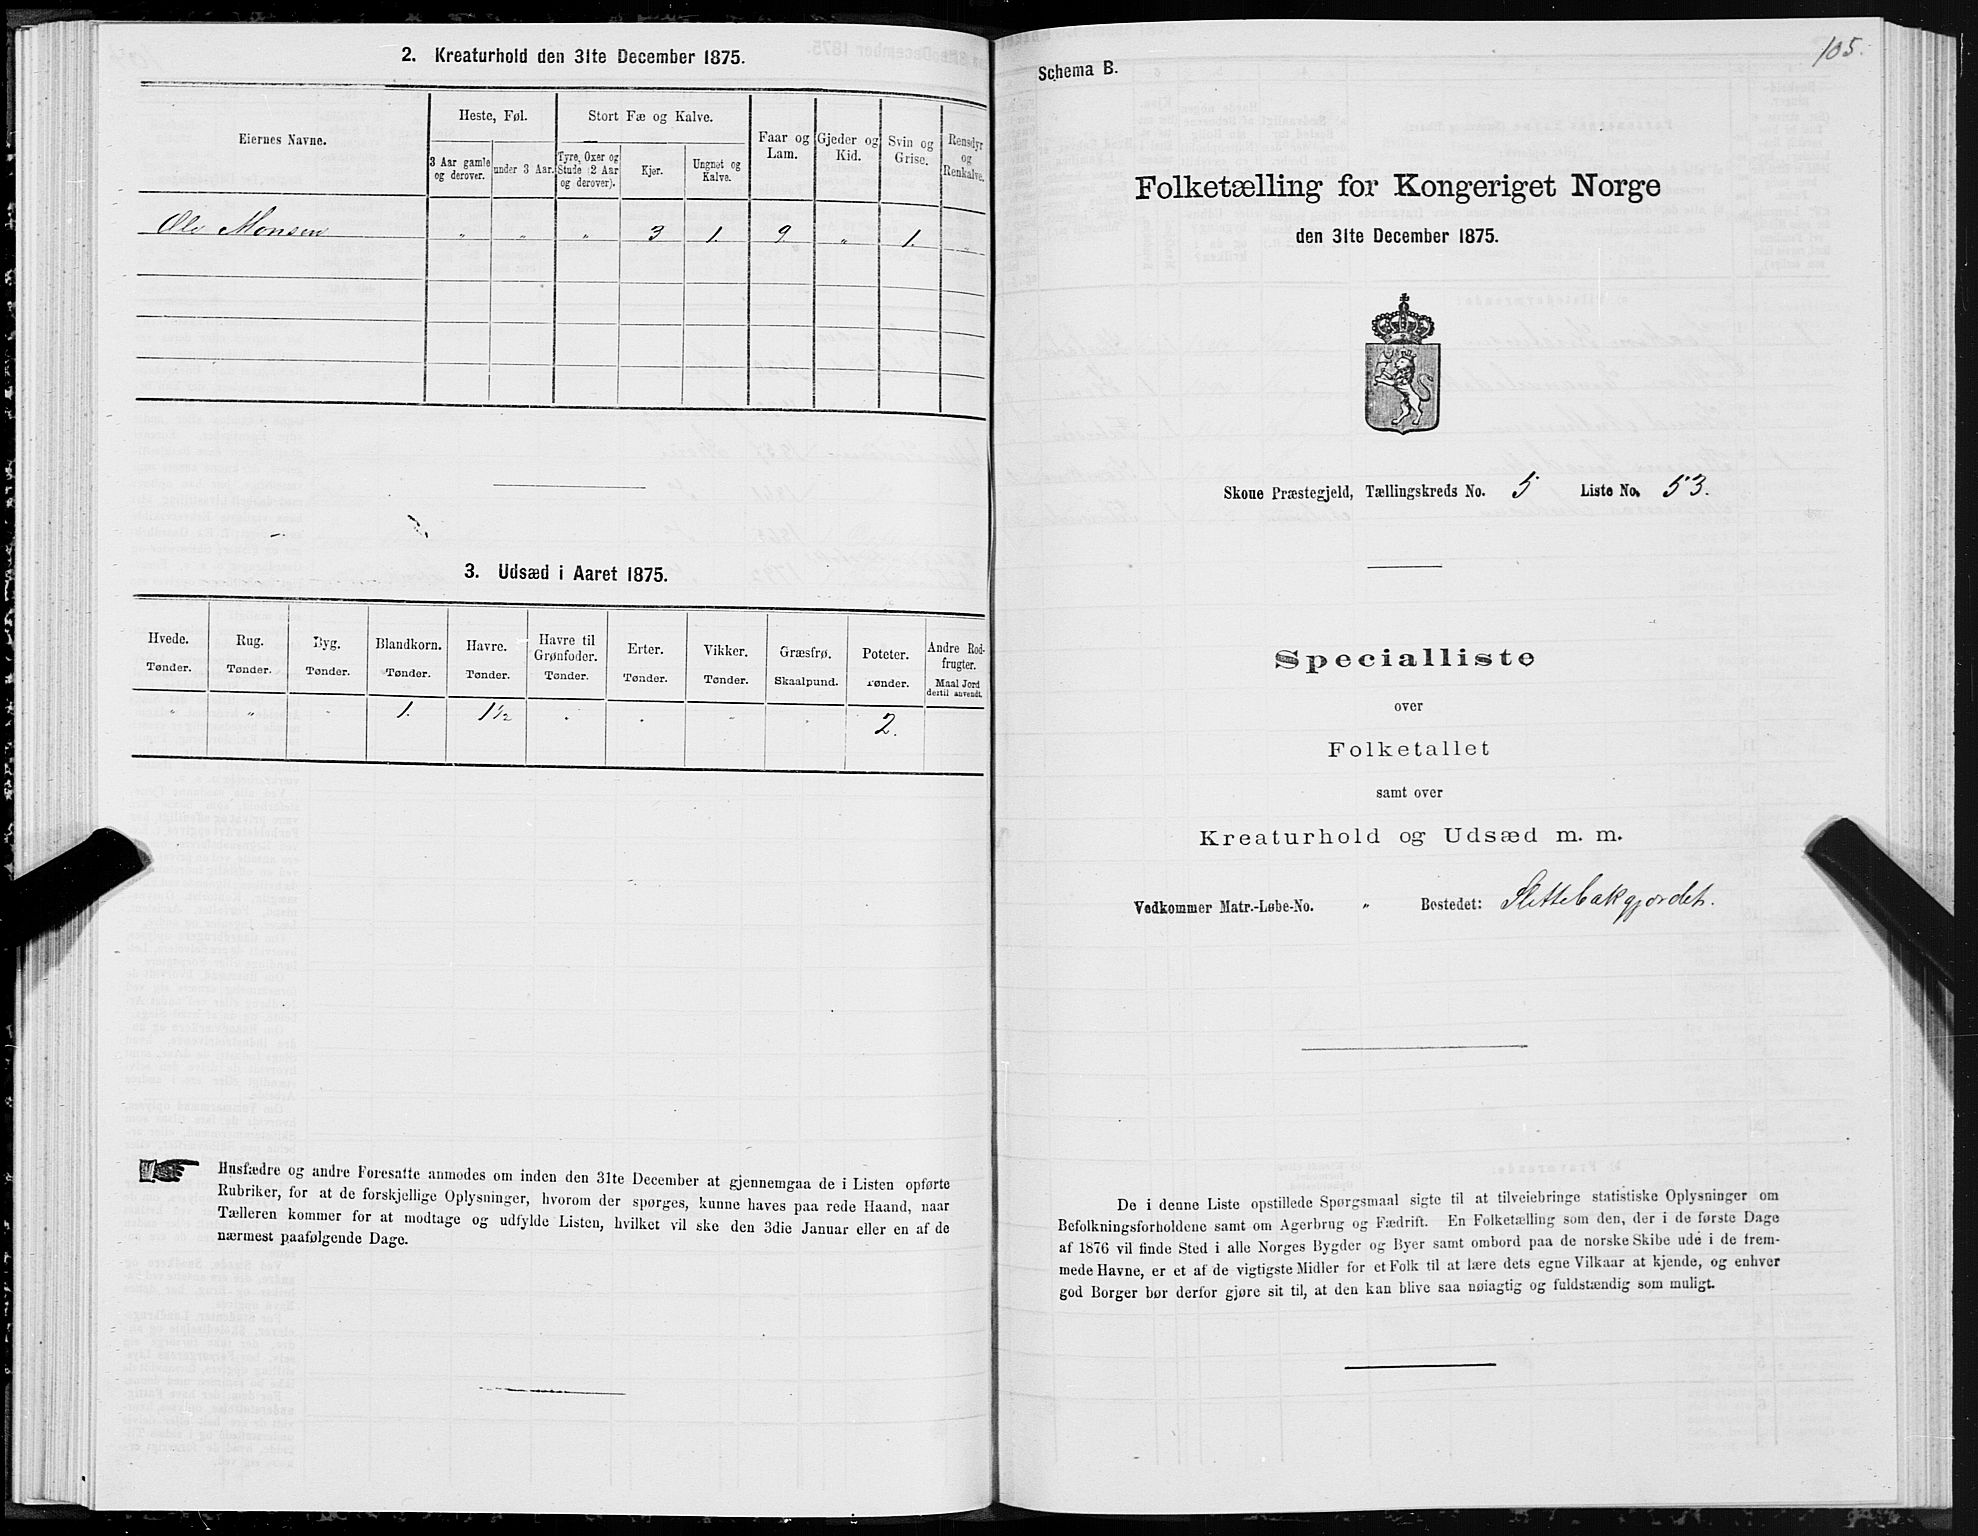 2. Kreaturhold den 31te December 1875.
Eiernes Navne.
Heste, Føl.
Stort Fæ og Kalve.
Faar og Lam.
Gjeder og Kid.
Svin og Grise.
Rensdyr og Renkalve.
3 Aar gamle og derover.
under 3 Aar.
Tyre, Oxer og Stude (2 Aar og derover).
Kjør.
Ungnøt og Kalve.
Ole Monsen " " " 3 1. 9 " 1. "
3. Udsæd i Aaret 1875.
Hvede. Rug. Byg. Blandkorn. Havre. Havre til Grønfoder. Erter. Vikker. Græsfrø. Poteter. Andre Rodfrugter.
Tønder. Tønder. Tønder. Tønder. Tønder. Tønder. Tønder. Tønder. Skaalpund. Tønder. Maal Jord dertil anvendt.
" " " 1. 1½ " " " " 2.
Husfædre og andre Foresatte anmodes om inden den 31te December at gjennemgaa de i Listen opførte
Rubriker, for at de forskjellige Oplysninger, hvorom der spørges, kunne haves paa rede Haand, naar
Tælleren kommer for at modtage og udfylde Listen, hvilket vil ske den 3die Januar eller en af de
nærmest paafølgende Dage.
105.
Schema B.
Folketælling for Kongeriget Norge
den 31te December 1875.
Skoue Præstegjeld, Tællingskreds No. 5 Liste No. 53.
Specialliste
over
Folketallet
samt over
Kreaturhold og Udsæd m. m.
Vedkommer Matr.-Løbe-No. " Bostedet: Slettebakgjordet.
De i denne Liste opstillede Spørgsmaal sigte til at tilveiebringe statistiske Oplysninger om
Befolkningsforholdene samt om Agerbrug og Fædrift. En Folketælling som den, der i de første Dage
af 1876 vil finde Sted i alle Norges Bygder og Byer samt ombord paa de norske Skibe ude i de frem-
mede Havne, er et af de vigtigste Midler for et Folk til at lære dets egne Vilkaar at kjende, og enhver
god Borger bør derfor gjøre sit til, at den kan blive saa nøiagtig og fuldstændig som muligt.